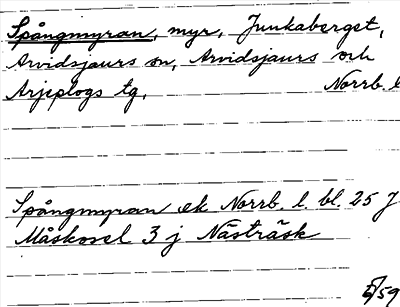 Spångmyran, myr, Junkaberget,
Arvidsjaurs sn, Arvidsjaurs och
Arjeplogs tg, Norrb. l
Spångmyran ek Norrb. l. bl. 25 J
Måskosel 3 j Nästräsk
/59